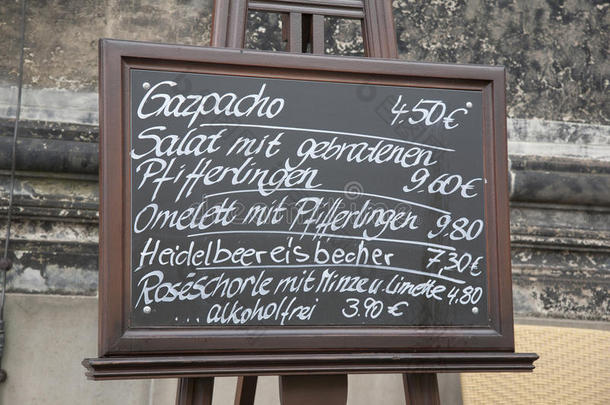 Gazpacho 4.50€
Salat mit gebratenen
Pfifferlingen 9.60€
Omelett mit Pfifferlingen 9.80
Heidelbeereisbecher 7,30€
Roséschorle mit Minze u. Limette 4.80
... alkoholfrei 3.90€